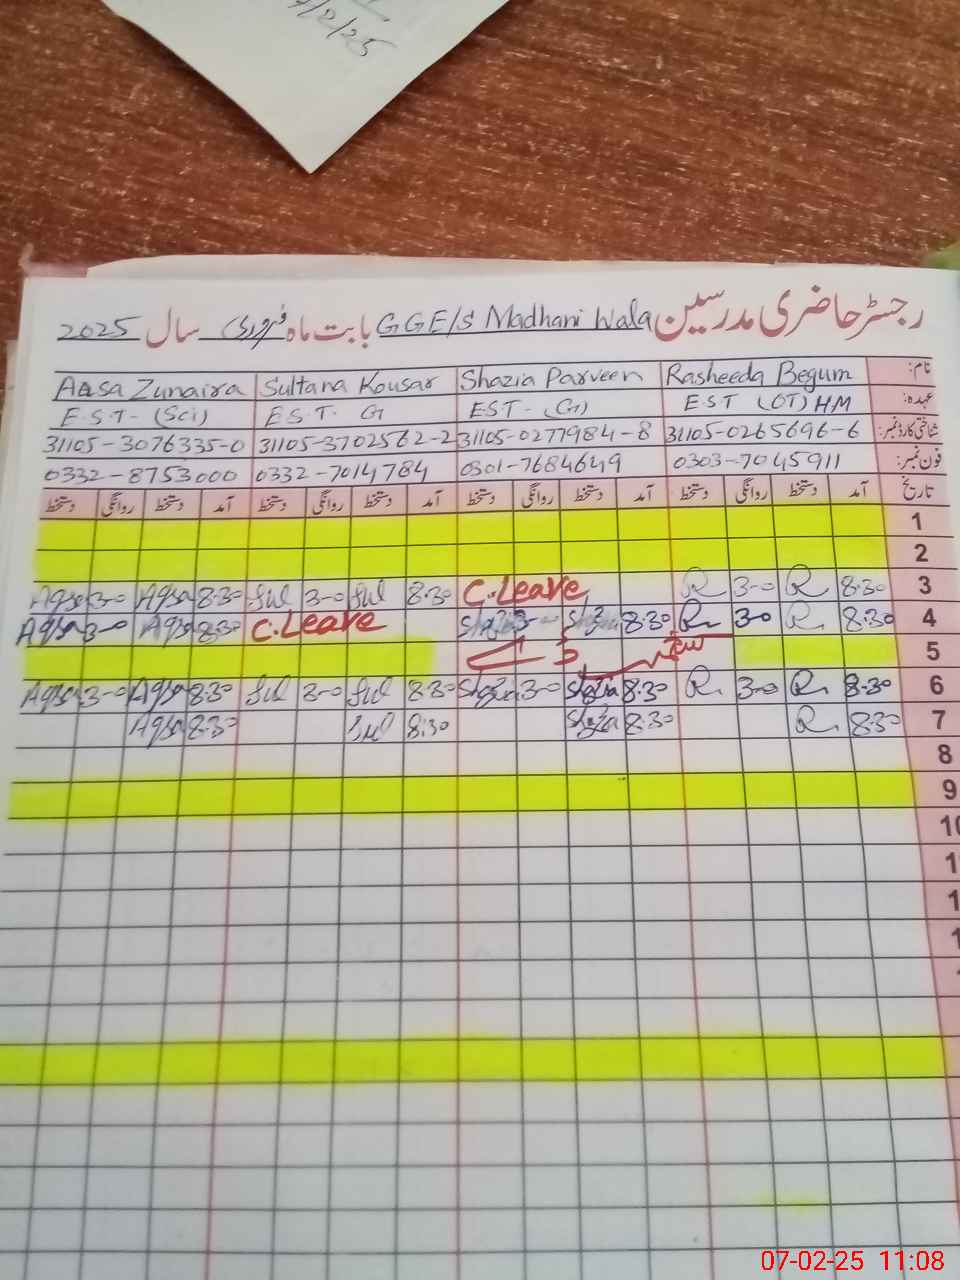 /2/25
رجسٹر حاضری مدرسین GGE/S Madhani Wala بابت ماہ فروری سال 2025
نام: Rasheeda Begum Shazia Parveen Sultana Kousar Aasa Zunaira
عہدہ: EST (OT) HM EST-(G) E.S.T. G E.S.T-(Sci)
شناختی کارڈ نمبر: 31105-0265696-6 31105-0277984-8 31105-3702562-2 31105-3076335-0
فون نمبر: 0303-7045911 0301-7684649 0332-7014784 0332-8753000
تاریخ آمد دستخط روانگی دستخط آمد دستخط روانگی دستخط آمد دستخط روانگی دستخط آمد دستخط روانگی دستخط
1
2
3 8:30 R 3-0 R C.Leave 8:30 Sul 3-0 Sul 8:30 Aqsa 3-0 Aqsa
4 8:30 R 3-0 R 8:30 Shazia 3- Shazia C.Leave 8:30 Aqsa 3-0 Aqsa
5
6 8:30 R 3-0 R 8:30 Shazia 3-0 Shazia 8:30 Sul 3-0 Sul 8:30 Aqsa 3-0 Aqsa
7 8:30 R 8:30 Shazia 8:30 Sul 8:30 Aqsa
8
9
10
07-02-25 11:08